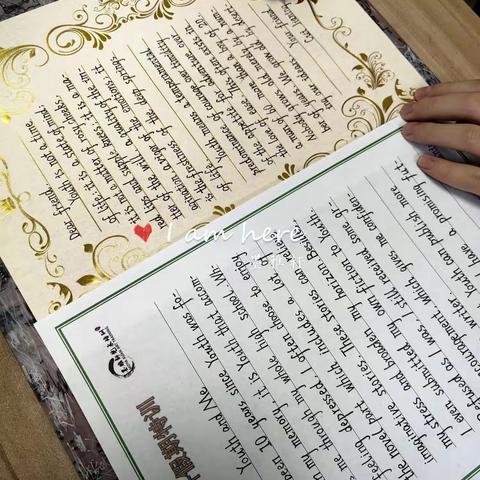 Dear friend,
Youth is not a time
of life; it is a state of mind.
it is not a matter of rosy cheeks,
red lips and supple knees, it is a ma-
of the will, a quality of the
agination, vigor of the emotions; it
is the freshness of the deep springs
of life.
Youth means a temperamental
predominance of courage over timidity
of the appetite, for adventure over
the love of ease. This often exists in
a man of 60 more than a boy of 20.
Nobody grows old merely by a num-
ber of years. We grow old by desert-
ing our ideas.
Your friend,
Cai
I am here.
Youth and Me
been 10 years since Youth was fo
in my memory, it is Youth that accom
s me through my whole high school. Wh
feeling depressed, I often choose to enjoy
the novel part which includes a lot of
imaginative stories. These stories can
my stress and broaden my horizon. Bes
even submitted my own fiction to Youth.
refused as I was, I still received some gr
encouragement which gives me confiden
writer. Youth can publish more
have a promising fut